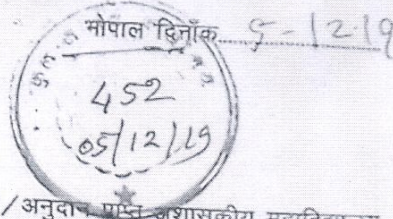 भोपाल दिनाँक 5-12-19
452
05/12/19
/अनुदान प्राप्त अशासकीय